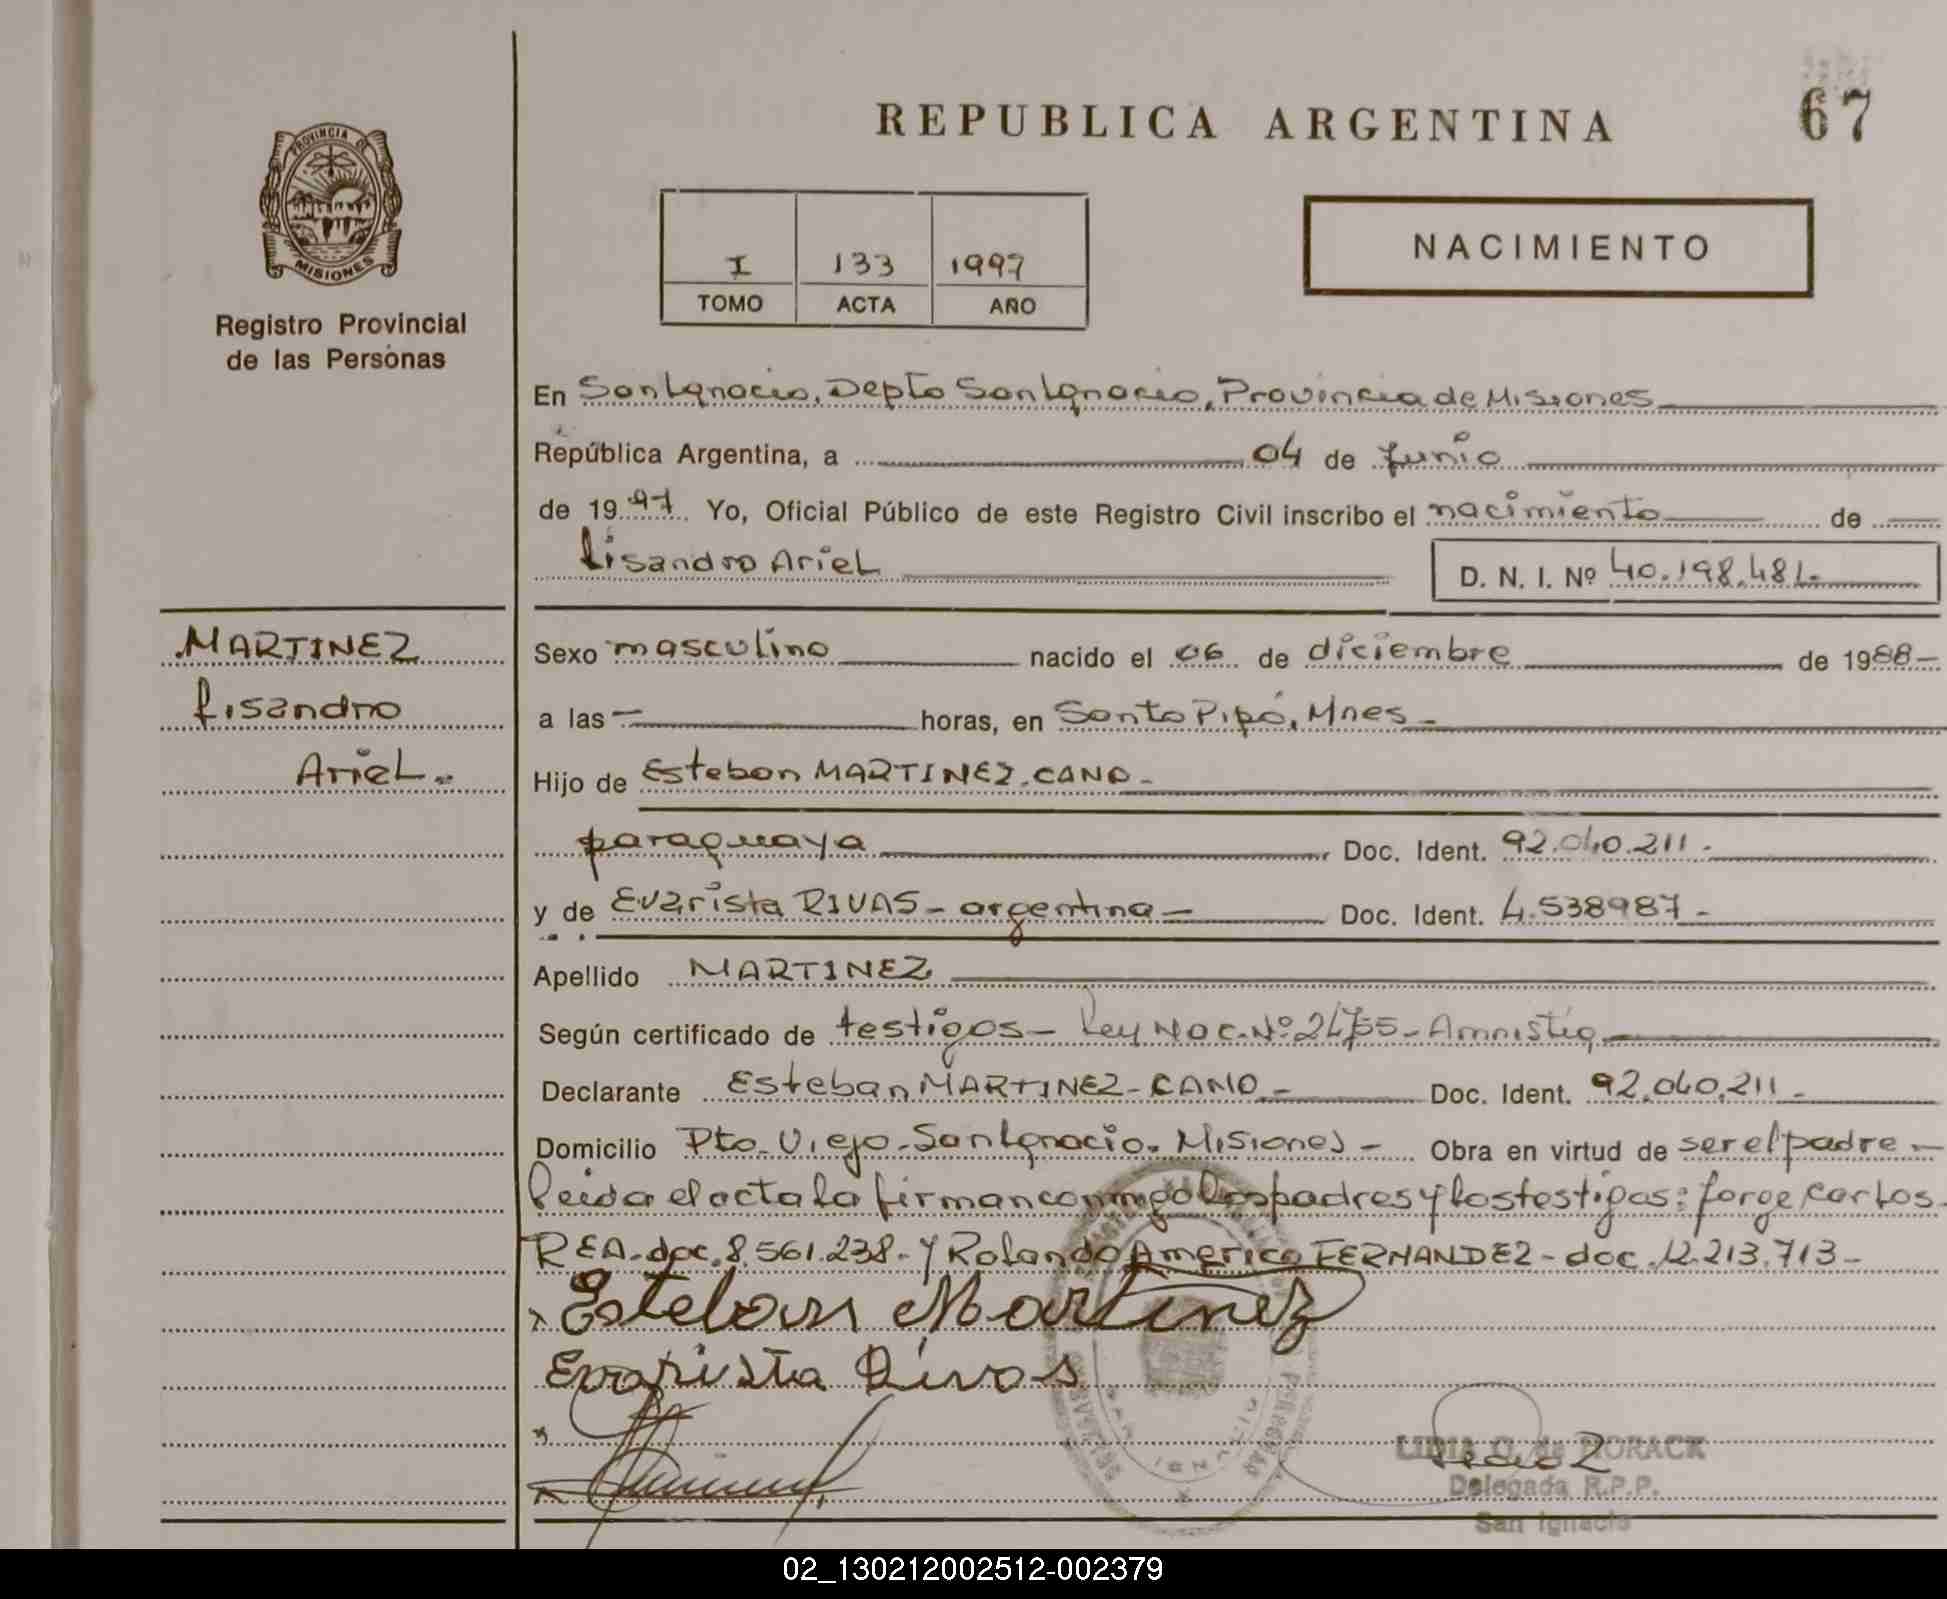 REPUBLICA ARGENTINA
67
PROVINCIA DE
MISIONES
Registro Provincial
de las Personas
I 133 1997
TOMO ACTA AÑO
NACIMIENTO
En San Ignacio, Depto San Ignacio, Provincia de Misiones
República Argentina, a 04 de junio
de 1997 Yo, Oficial Público de este Registro Civil inscribo el nacimiento de
Lisandro Ariel
D. N. I. Nº 40.198.481.
MARTINEZ
Lisandro
Ariel.
Sexo masculino nacido el 06 de diciembre de 1988
a las horas, en Santo Pipó, Mnes
Hijo de Esteban MARTINEZ-CANO
paraguaya Doc. Ident. 92.040.211
y de Evarista RIVAS - argentina - Doc. Ident. 4.538987
Apellido MARTINEZ
Según certificado de testigos - Ley Nac. Nº 24755 - Amnistia
Declarante Esteban MARTINEZ-CANO Doc. Ident. 92.040.211
Domicilio Pto. Viejo - San Ignacio. Misiones - Obra en virtud de ser el padre
Leida el acta la firman conmigo los padres y los testigos: Jorge Carlos
REA - doc. 8.561.238 - y Rolando Americo FERNANDEZ - doc. 12.213.713 -
Esteban Martinez
Evarista Rivas
LIDIA O. de HORACK
Delegada R.P.P.
San Ignacio
02_130212002512-002379